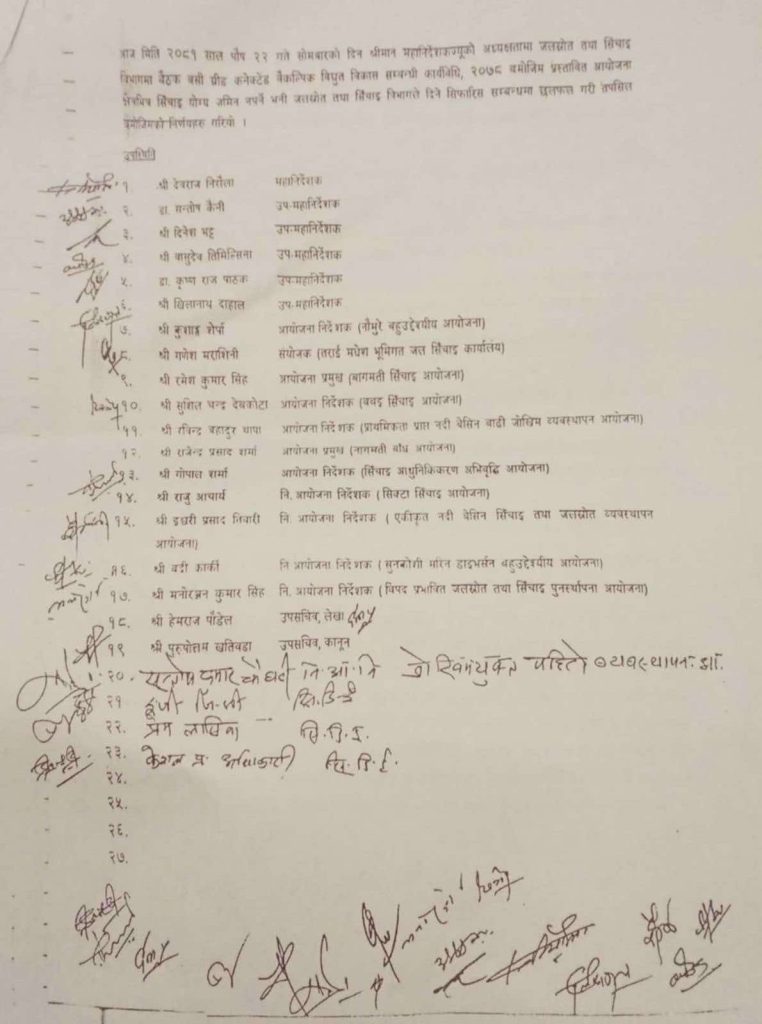 आज मिति २०८१ साल पौष २२ गते सोमबारको दिन श्रीमान महानिर्देशकज्यूको अध्यक्षतामा जलस्रोत तथा सिंचाइ
विभागमा बैठक बसी ग्रीड कनेक्टेड बैकल्पिक विधुत विकास सम्बन्धी कार्यविधि, २०७८ बमोजिम प्रस्तावित आयोजना
क्षेत्रभित्र सिंचाइ योग्य जमिन नपर्ने भनी जलस्रोत तथा सिंचाइ विभागले दिने सिफारिस सम्बन्धमा छलफल गरी तपसिल
बमोजिमको निर्णयहरु गरियो ।
उपस्थिति
१ श्री देवराज निरौला महानिर्देशक
२. डा. सन्तोष कैनी उप-महानिर्देशक
३. श्री दिनेश भट्ट उप-महानिर्देशक
४. श्री बासुदेव तिमिल्सिना उप-महानिर्देशक
५. डा. कृष्ण राज पाठक उप-महानिर्देशक
६. श्री खिलानाथ दाहाल उप-महानिर्देशक
७. श्री कुशाङ्ग शेर्पा आयोजना निर्देशक (नौमुरे बहुउद्देश्यीय आयोजना)
८. श्री गणेश मरासिनी संयोजक (तराई मधेश भूमिगत जल सिंचाइ कार्यालय)
९. श्री रमेश कुमार सिंह आयोजना प्रमुख (बागमती सिंचाइ आयोजना)
१०. श्री सुशिल चन्द्र देवकोटा आयोजना निर्देशक (बबइ सिंचाइ आयोजना)
११. श्री रविन्द्र बहादुर थापा आयोजना निर्देशक (प्राथमिकता प्राप्त नदी बेसिन बाढी जोखिम व्यवस्थापन आयोजना)
१२. श्री राजेन्द्र प्रसाद शर्मा आयोजना प्रमुख (नागमती बाँध आयोजना)
१३. श्री गोपाल शर्मा आयोजना निर्देशक (सिंचाइ आधुनिकिकरण अभिवृद्धि आयोजना)
१४. श्री राजु आचार्य नि. आयोजना निर्देशक ( सिक्टा सिंचाइ आयोजना)
१५. श्री इश्वरी प्रसाद तिवारी नि. आयोजना निर्देशक ( एकीकृत नदी बेसिन सिंचाइ तथा जलस्रोत व्यवस्थापन
आयोजना)
१६. श्री बद्री कार्की नि आयोजना निर्देशक ( सुनकोशी मरिन डाइभर्सन बहुउद्देश्यीय आयोजना)
१७. श्री मनोरञ्जन कुमार सिंह नि. आयोजना निर्देशक ( विपद प्रभावित जलस्रोत तथा सिंचाइ पुनर्स्थापना आयोजना)
१८. श्री हेमराज पौडेल उपसचिव, लेखा
१९ श्री पुरुषोत्तम खतिवडा उपसचिव, कानून
२०. नि. आ. नि व्यवस्थापन
२१ सि. डि. ई
२२. प्रेम सि. डि. ई.
२३. केशव प्र. अधिकारी सि. डि. ई.
२४.
२५.
२६.
२७.